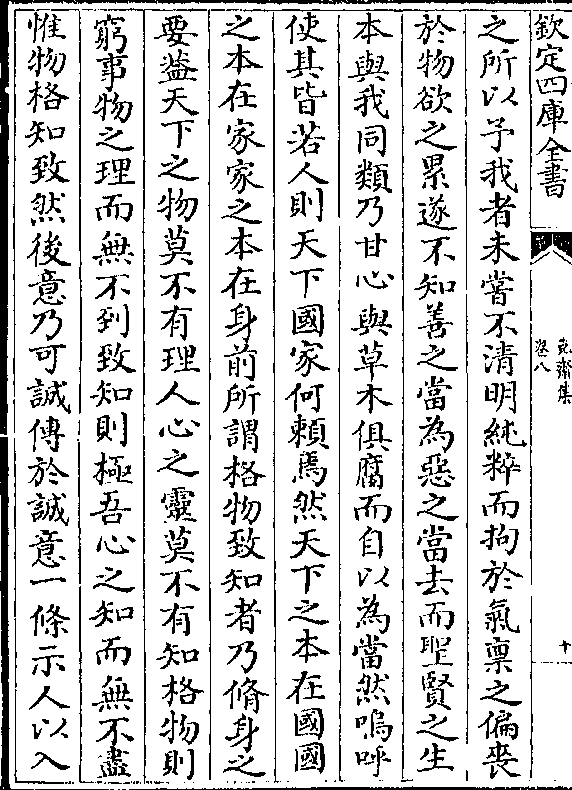 欽定四庫全書
克齋集
卷八
十
之所以予我者未嘗不清明純粹而拘於氣禀之偏喪
於物欲之累遂不知善之當為惡之當去而聖賢之生
本與我同類乃甘心與草木俱腐而自以為當然嗚呼
使其皆若人則天下國家何賴焉然天下之本在國國
之本在家家之本在身前所謂格物致知者乃脩身之
要葢天下之物莫不有理人心之靈莫不有知格物則
窮事物之理而無不到致知則極吾心之知而無不盡
惟物格知致然後意乃可誠傳於誠意一條示人以入